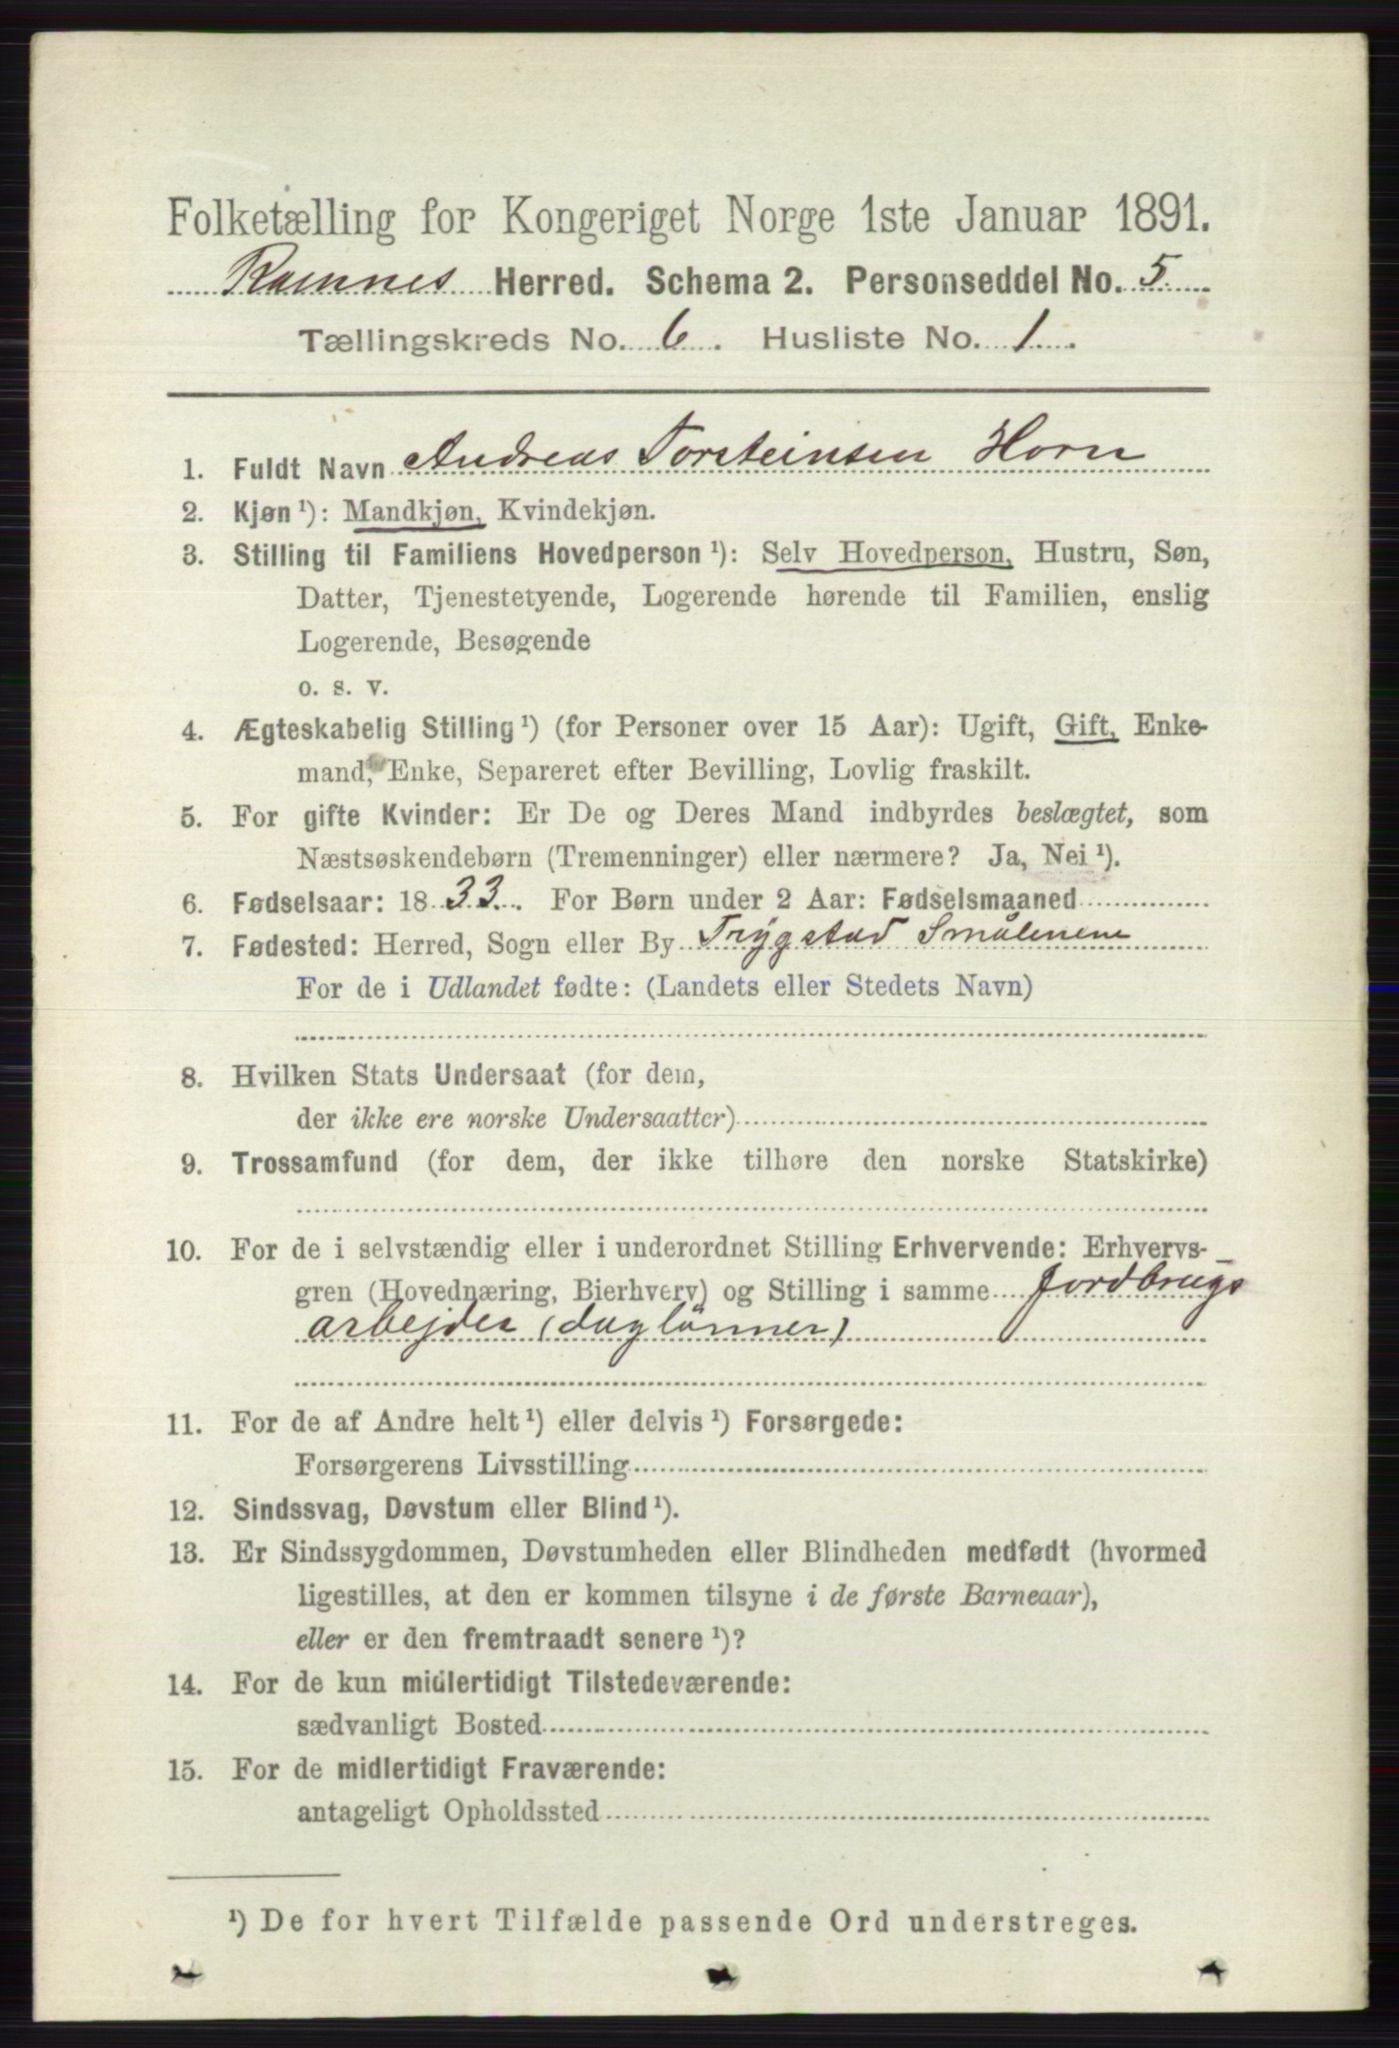 Folketælling for Kongeriget Norge 1ste Januar 1891.
Ramnes Herred. Schema 2. Personseddel No. 5.
Tællingskreds No. 6. Husliste No. 1.
1. Fuldt Navn Andreas Torsteinsen Horn
2. Kjøn ¹): Mandkjøn, Kvindekjøn.
3. Stilling til Familiens Hovedperson ¹): Selv Hovedperson, Hustru, Søn,
Datter, Tjenestetyende, Logerende hørende til Familien, enslig
Logerende, Besøgende
o. s. v.
4. Ægteskabelig Stilling ¹) (for Personer over 15 Aar): Ugift, Gift, Enke-
mand, Enke, Separeret efter Bevilling, Lovlig fraskilt.
5. For gifte Kvinder: Er De og Deres Mand indbyrdes beslægtet, som
Næstsøskendebørn (Tremenninger) eller nærmere? Ja, Nei ¹).
6. Fødselsaar: 1833. For Børn under 2 Aar: Fødselsmaaned
7. Fødested: Herred, Sogn eller By Trygstad Smålenene
For de i Udlandet fødte: (Landets eller Stedets Navn)
8. Hvilken Stats Undersaat (for dem,
der ikke ere norske Undersaatter)
9. Trossamfund (for dem, der ikke tilhøre den norske Statskirke)
10. For de i selvstændig eller i underordnet Stilling Erhvervende: Erhvervs-
gren (Hovednæring, Bierhverv) og Stilling i samme Jordbrugs
arbejder (daglönner)
11. For de af Andre helt ¹) eller delvis ¹) Forsørgede:
Forsørgerens Livsstilling
12. Sindssvag, Døvstum eller Blind ¹).
13. Er Sindssygdommen, Døvstumheden eller Blindheden medfødt (hvormed
ligestilles, at den er kommen tilsyne i de første Barneaar),
eller er den fremtraadt senere ¹)?
14. For de kun midlertidigt Tilstedeværende:
sædvanligt Bosted
15. For de midlertidigt Fraværende:
antageligt Opholdssted
¹) De for hvert Tilfælde passende Ord understreges.